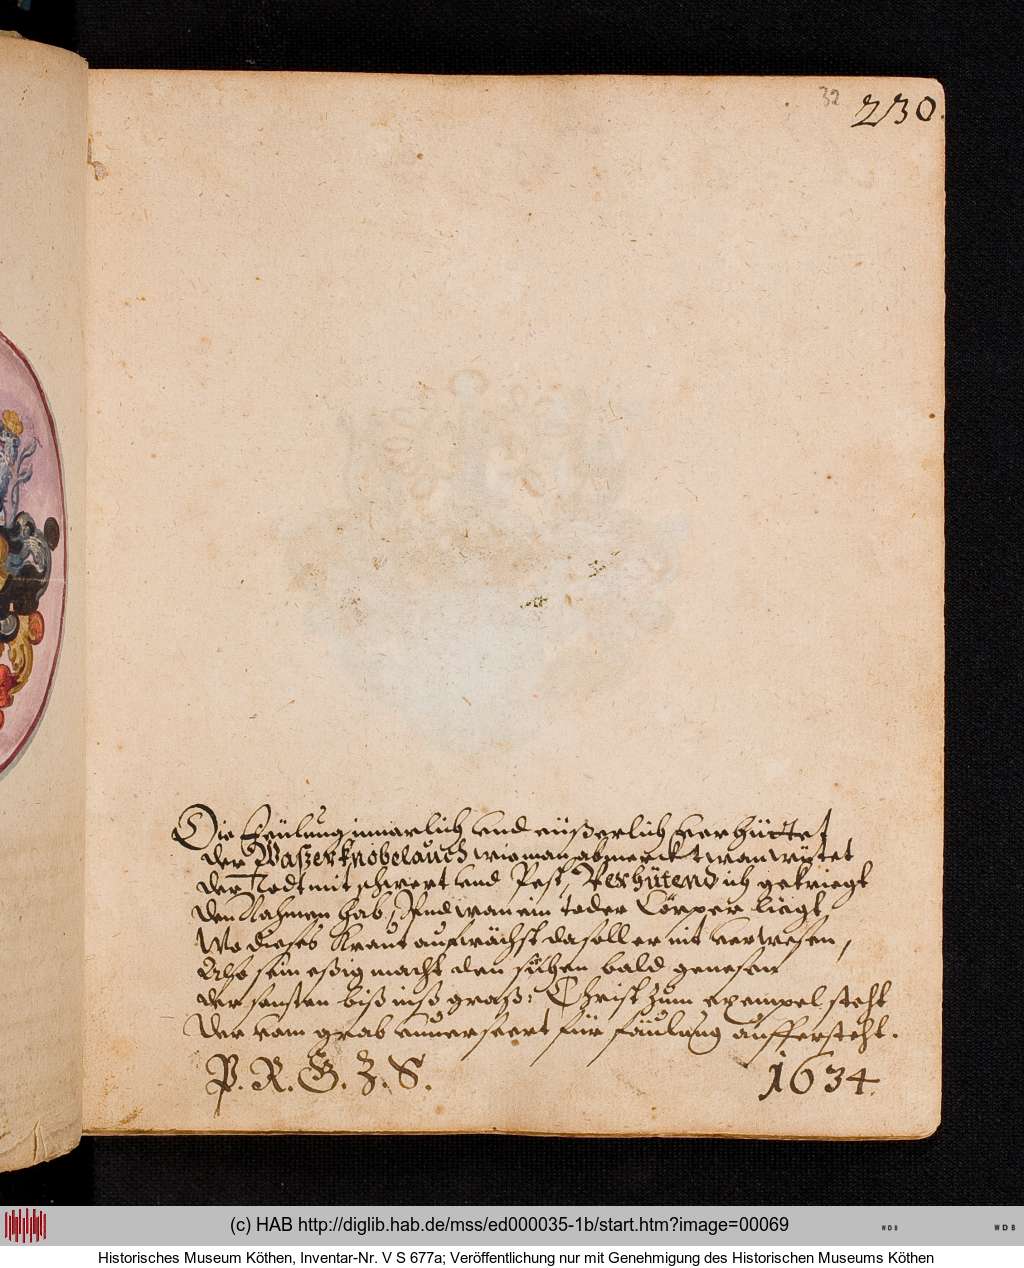 32
230.
Die Feülung innerlich vnd eüßerlich verhüttet
der Waßerknobelauch wie man abmerckt wan wütet
der Todt mit schwert vnd Pest, Verhütend ich gekriegt
den Nahmen hab, Vnd wan ein toder Cörper liegt,
Wo dieses Kraut aufwächst da soll er nit verwesen,
Also sein eßig macht den sichen bald genesen
der sonsten biß ins graß: Christ zum exempel steht
Der vom grab vnverseert für fäulung auffersteht.
P. R. G. Z. S.
1634.
(c) HAB http://diglib.hab.de/mss/ed000035-1b/start.htm?image=00069
WDB
WDB
Historisches Museum Köthen, Inventar-Nr. V S 677a; Veröffentlichung nur mit Genehmigung des Historischen Museums Köthen